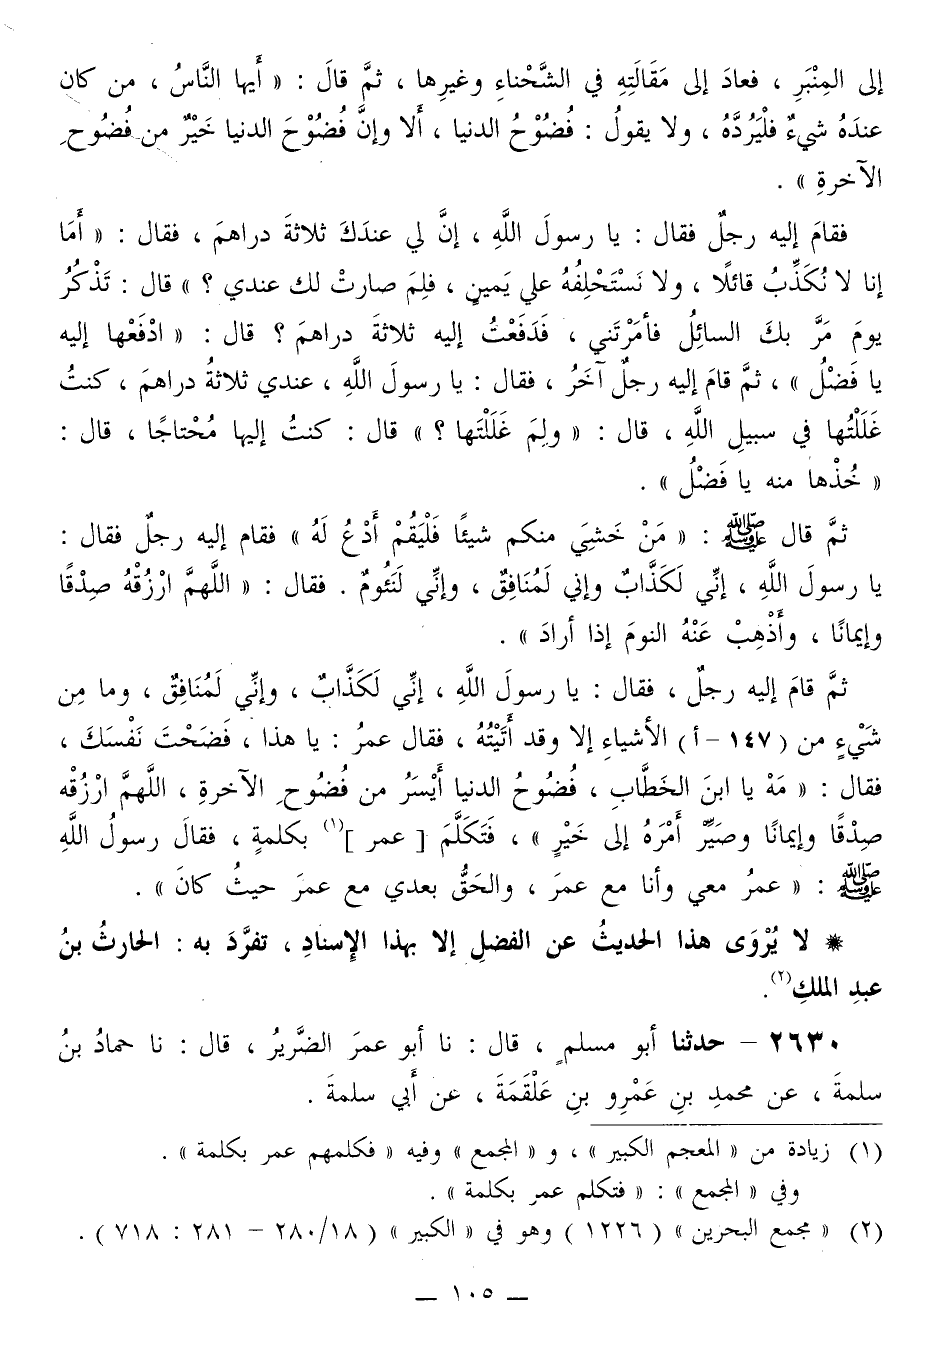 إلى المِنْبَرِ ، فعادَ إلى مَقَالَتِهِ في الشَّحْناءِ وغيرِها ، ثمَّ قالَ : « أَيها النَّاسُ ، من كان
عندَهُ شيءٌ فلْيَرُدَّهُ ، ولا يقولُ : فُضُوْحُ الدنيا ، أَلا وإنَّ فُضُوْحَ الدنيا خَيْرٌ من فُضُوحِ
الآخرةِ » .
فقامَ إليه رجلٌ فقال : يا رسولَ اللَّهِ ، إنَّ لي عندَكَ ثلاثةَ دراهمَ ، فقال : « أَمَا
إنا لا نُكَذِّبُ قائلًا ، ولا نَسْتَحْلِفُهُ على يَمينٍ ، فلِمَ صارتْ لك عندي ؟ » قال : تَذْكُرُ
يومَ مَرَّ بكَ السائِلُ فأمَرْتَني ، فَدَفَعْتُ إليه ثلاثةَ دراهمَ ؟ قال : « ادْفَعْها إليه
يا فَضْلُ » ، ثمَّ قامَ إليه رجلٌ آخَرُ ، فقال : يا رسولَ اللَّهِ ، عندي ثلاثةُ دراهمَ ، كنتُ
غَلَلْتُها في سبيلِ اللَّهِ ، قال : « ولِمَ غَلَلْتَها ؟ » قال : كنتُ إليها مُحْتاجًا ، قال :
« خُذْها منه يا فَضْلُ » .
ثمَّ قال ﷺ : « مَنْ خَشِيَ منكم شيئًا فَلْيَقُمْ أَدْعُ لَهُ » فقام إليه رجلٌ فقال :
يا رسولَ اللَّهِ ، إنِّي لَكَذَّابٌ وإني لَمُنَافِقٌ ، وإنِّي لَنَئُومٌ . فقال : « اللَّهمَّ ارْزُقْهُ صِدْقًا
وإيمانًا ، وأَذْهِبْ عَنْهُ النومَ إذا أرادَ » .
ثمَّ قامَ إليه رجلٌ ، فقال : يا رسولَ اللَّهِ ، إنِّي لَكَذَّابٌ ، وإنِّي لَمُنَافِقٌ ، وما مِن
شَيْءٍ من ( ١٤٧ - أ ) الأشياءِ إلا وقد أَتَيْتُهُ ، فقال عمرُ : يا هذا ، فَضَحْتَ نَفْسَكَ ،
فقال : « مَهْ يا ابنَ الخَطَّابِ ، فُضُوحُ الدنيا أَيْسَرُ من فُضُوحِ الآخرةِ ، اللَّهمَّ ارْزُقْه
صِدْقًا وإيمانًا وصَيِّرْ أَمْرَهُ إلى خَيْرٍ » ، فَتَكَلَّمَ [ عمر ](١) بكلمةٍ ، فقالَ رسولُ اللَّهِ
ﷺ : « عمرُ معي وأنا مع عمرَ ، والحَقُّ بعدي مع عمرَ حيثُ كانَ » .
* لا يُرْوَى هذا الحديثُ عن الفضلِ إلا بهذا الإسنادِ ، تفرَّدَ به : الحارثُ بنُ
عبدِ الملكِ(٢).
٢٦٣٠ - حدثنا أبو مسلمٍ ، قال : نا أبو عمرَ الضَّريرُ ، قال : نا حمادُ بنُ
سلمةَ ، عن محمدِ بنِ عَمْرِو بنِ عَلْقَمَةَ ، عن أبي سلمةَ .
(١) زيادة من « المعجم الكبير » ، و « المجمع » وفيه « فكلمهم عمر بكلمة » .
وفي « المجمع » : « فتكلم عمر بكلمة » .
(٢) « مجمع البحرين » ( ١٢٢٦ ) وهو في « الكبير » ( ٢٨٠/١٨ - ٢٨١ : ٧١٨ ) .
— ١٠٥ —